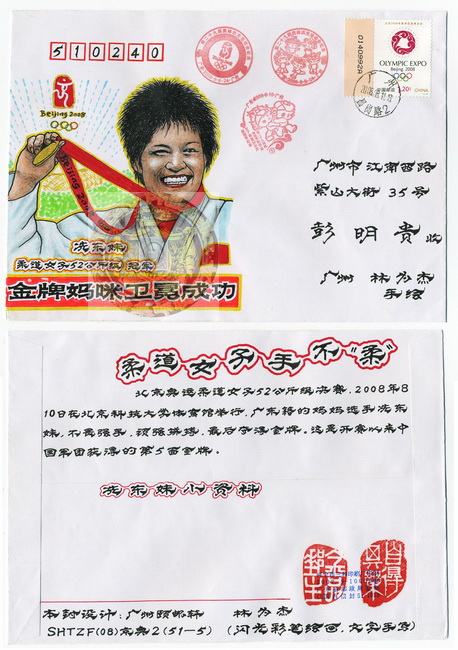 510240
0140992A
OLYMPIC EXPO
Beijing 2008
1.20元
中国邮政 CHINA
广州市江南西路
紫山大街35号
彭明贵收
广州 林为杰
手绘
Beijing 2008
冼东妹
柔道女子52公斤级 冠军
金牌妈咪卫冕成功
柔道女子手不“柔”
北京奥运柔道女子52公斤级决赛，2008年8
10日在北京科技大学体育馆举行，广东籍的妈妈选手冼东
妹，不畏强手，顽强拼搏，最后夺得金牌。这是开赛以来中
国军团获得的第5面金牌。
冼东妹小资料
本封设计：广州 林为杰
SHTZF(08)京奥2(51-5) (闪光彩笔绘画，文字手写)